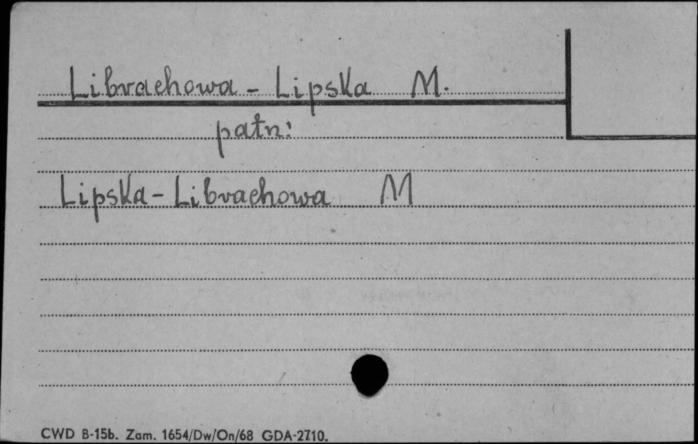 Librachowa - Lipska M.
patrz:
Lipska - Librachowa M
CWD B-15b. Zam. 1654/Dw/On/68 GDA-2710.